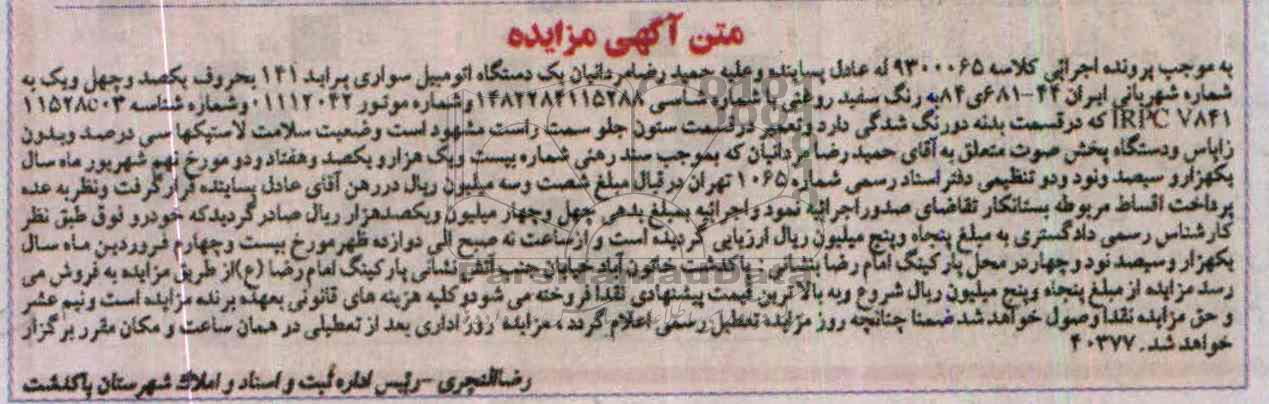 متن آگهی مزایده
به موجب پرونده اجرائی کلاسه ۹۳۰۰۰۶۵ له عادل پساینده وعلیه حمید رضامردانیان یک دستگاه اتومبیل سواری پراید ۱۴۱ بحروف یکصد وچهل ویک به
شماره شهربانی ایران ۴۴-۶۸۱ی۸۴به رنگ سفید روغنی با شماره شاسی ۱۴۸۲۲۸۴۱۱۵۲۸۸ وشماره موتور ۰۱۱۱۲۰۴۲ وشماره شناسه
IRPC V۸۴۱ که درقسمت بدنه دورنگ شدگی دارد وتعمیر درقسمت ستون جلو سمت راست مشهود است وضعیت سلامت لاستیکها سی درصد وبدون
زاپاس ودستگاه پخش صوت متعلق به آقای حمید رضا مردانیان که بموجب سند رهنی شماره بیست ویک هزارو یکصد وهفتاد ودو مورخ نهم شهریور ماه سال
یکهزارو سیصد ونود ودو تنظیمی دفتر اسناد رسمی شماره ۱۰۶۵ تهران درقبال مبلغ شصت وسه میلیون ریال دررهن آقای عادل پساینده قرارگرفت ونظربه عده
پرداخت اقساط مربوطه بستانکار تقاضای صدوراجرائیه نمود واجرائیه بمبلغ بدهی چهل وچهار میلیون ویکصدهزار ریال صادر گردیدکه خودرو فوق طبق نظر
کارشناس رسمی دادگستری به مبلغ پنجاه وپنج میلیون ریال ارزیابی گردیده است و ازساعت نه صبح الی دوازده ظهرمورخ بیست وچهارم فروردین ماه سال
یکهزار وسیصد نود وچهاردر محل پارکینگ امام رضا بنشانی : پاکدشت خاتون آباد خیابان جنب آتش نشانی پارکینگ امام رضا (ع)از طریق مزایده به فروش می
رسد مزایده از مبلغ پنجاه وپنج میلیون ریال شروع وبه بالاترین قیمت پیشنهادی نقدا فروخته می شودوکلیه هزینه های قانونی بعهده برنده مزایده است ونیم عشر
و حق مزایده نقدا وصول خواهد شد ضمنا چنانچه روز مزایده تعطیل رسمی اعلام گردد ، مزایده روز اداری بعد از تعطیلی در همان ساعت و مکان مقرر برگزار
خواهد شد. ۴۰۳۷۷
رضاقلنچری -رئیس اداره ثبت و اسناد و املاک شهرستان پاکدشت
ParsNamadData